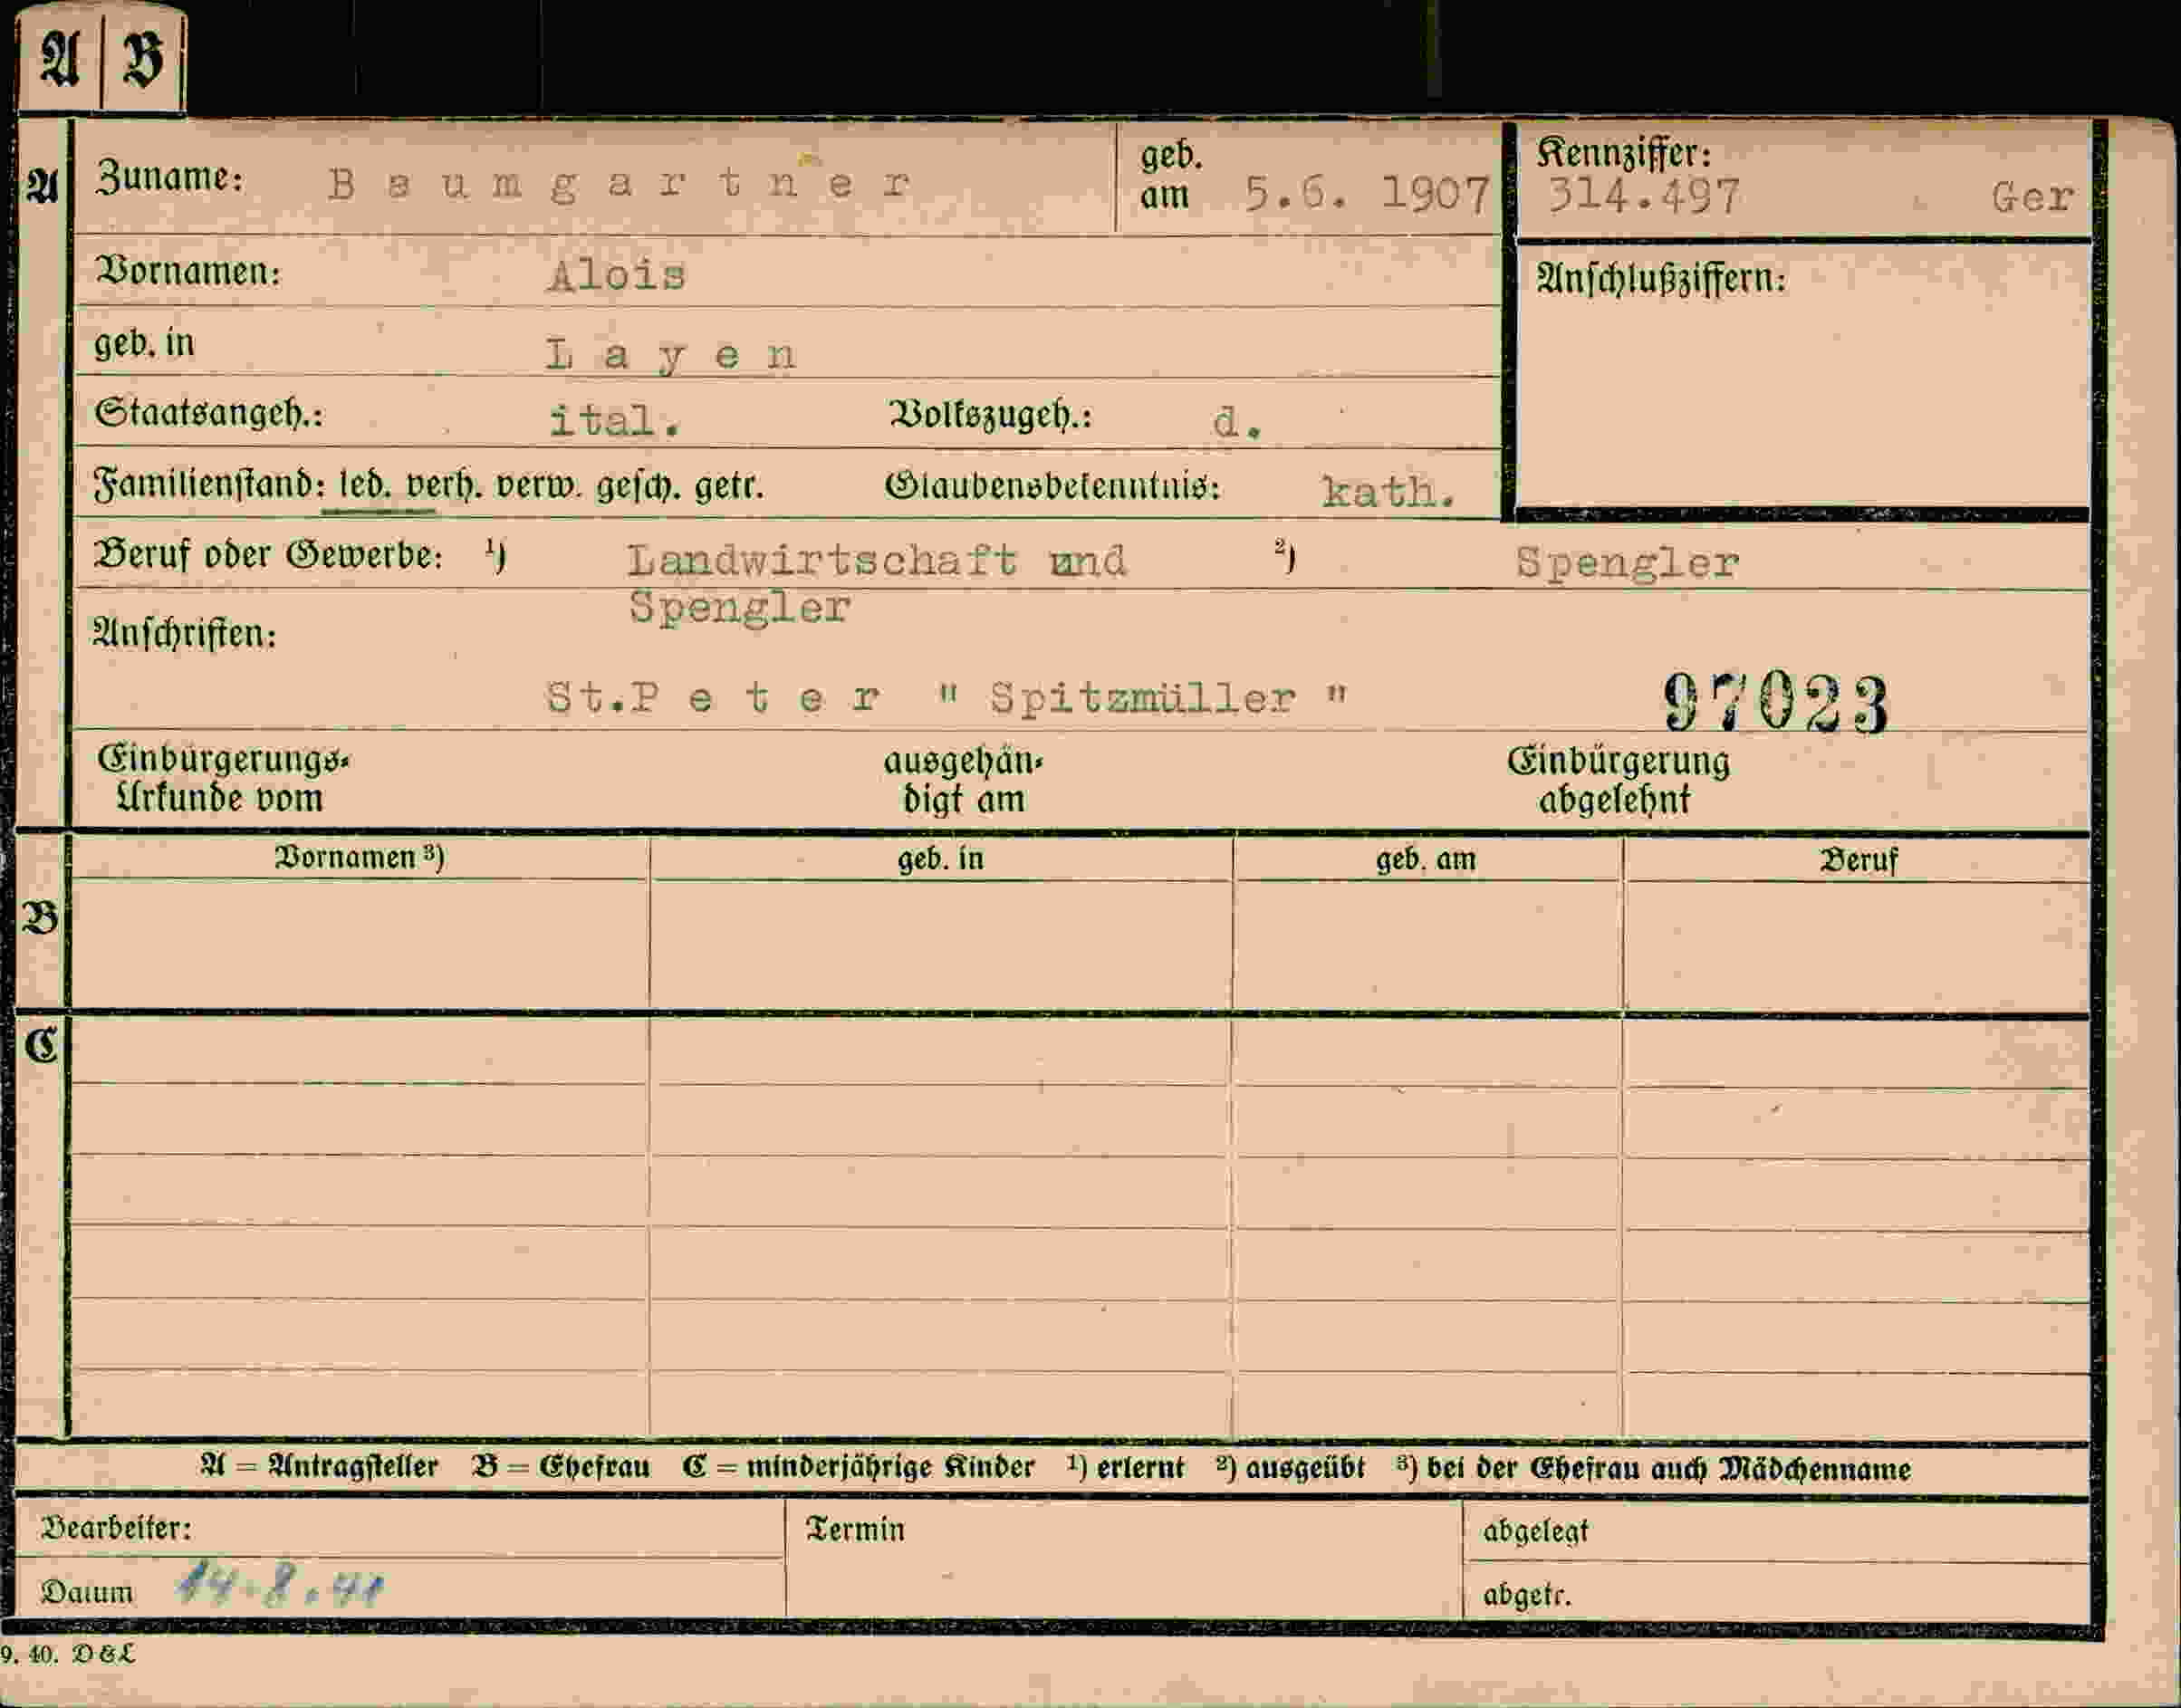 A B
A Zuname: Baumgartner geb. am 5.6. 1907 Kennziffer: 314.497 Ger
Vornamen: Alois Anschlußziffern:
geb. in Layen
Staatsangeh.: ital. Volkszugeh.: d.
Familienstand: led. verh. verw. gesch. getr. Glaubensbekenntnis: kath.
Beruf oder Gewerbe: 1) Landwirtschaft und 2) Spengler
Spengler
Anschriften:
St.Peter " Spitzmüller " 97023
Einbürgerungs- ausgehän- Einbürgerung
Urkunde vom digt am abgelehnt
Vornamen 3) geb. in geb. am Beruf
B
C
A = Antragsteller B = Ehefrau C = minderjährige Kinder 1) erlernt 2) ausgeübt 3) bei der Ehefrau auch Mädchenname
Bearbeiter: Termin abgelegt
Datum 14.8.41 abgetr.
9. 40. D&L